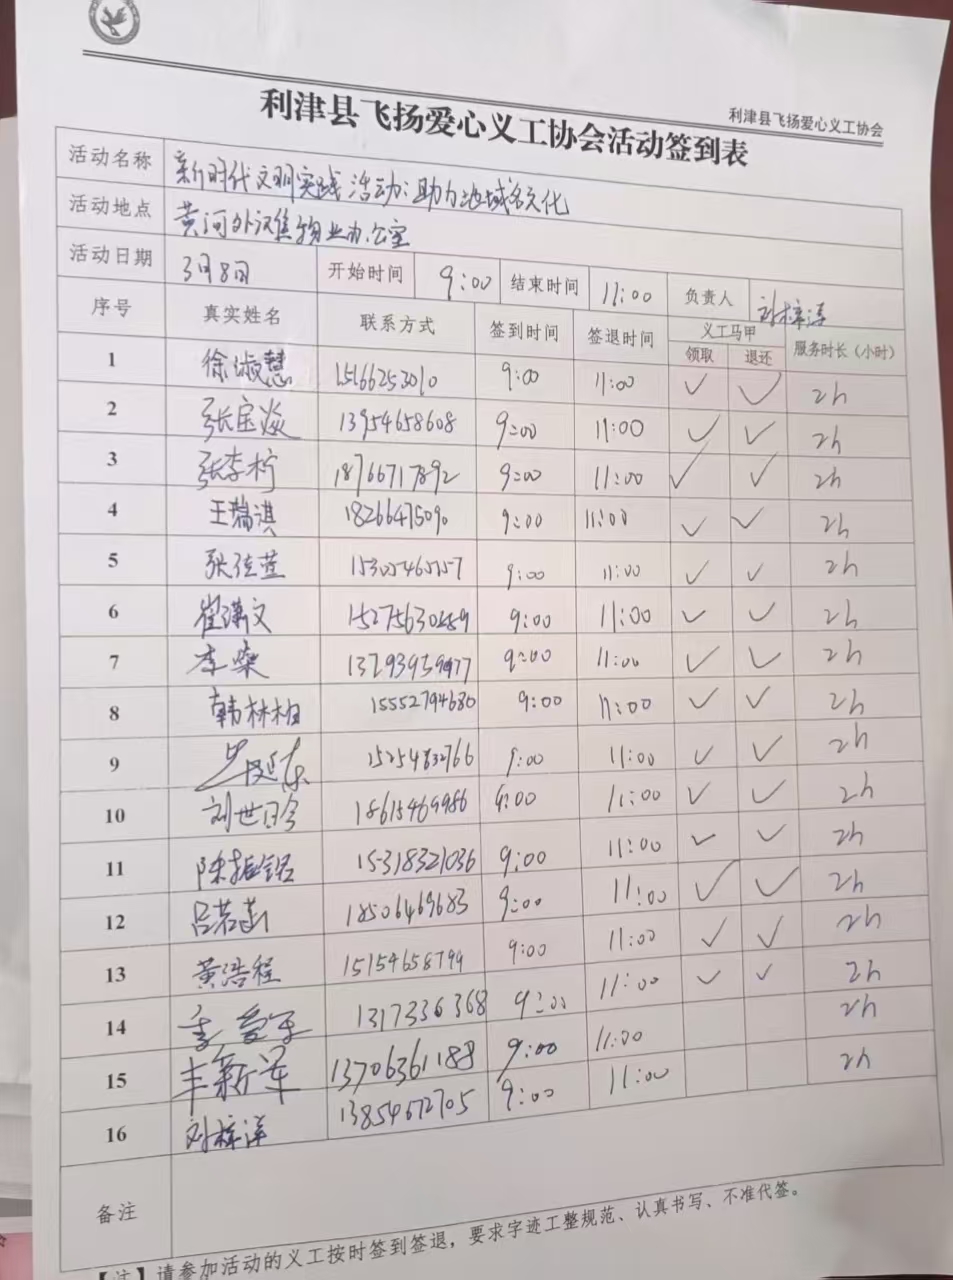 利津县飞扬爱心义工协会
利津县飞扬爱心义工协会活动签到表
活动名称 新时代文明实践活动:助力地域文化
活动地点 黄河外滩 物业办公室
活动日期 3月8日 开始时间 9:00 结束时间 11:00 负责人 刘梓洋
序号 真实姓名 联系方式 签到时间 签退时间 义工马甲 领取 退还 服务时长(小时)
1 徐淑慧 15166253010 9:00 11:00 ✓ ✓ 2h
2 张宝焱 13954658608 9:00 11:00 ✓ ✓ 2h
3 张李柠 18766717892 9:00 11:00 ✓ ✓ 2h
4 王瑞淇 18266475090 9:00 11:00 ✓ ✓ 2h
5 张 萱 9:00 11:00 ✓ ✓ 2h
6 崔潇文 9:00 11:00 ✓ ✓ 2h
7 李燊 9:00 11:00 ✓ ✓ 2h
8 韩林柏 15552794680 9:00 11:00 ✓ ✓ 2h
9 9:00 11:00 ✓ ✓ 2h
10 刘世 18615469986 9:00 11:00 ✓ ✓ 2h
11 陈振铭 15318321036 9:00 11:00 ✓ ✓ 2h
12 吕若菡 18506469683 9:00 11:00 ✓ ✓ 2h
13 黄浩程 15154658799 9:00 11:00 ✓ ✓ 2h
14 1317336368 9:00 11:00 2h
15 丰新军 13706361188 9:00 11:00 2h
16 刘梓洋 13854672705 9:00
备注
【注】请参加活动的义工按时签到签退,要求字迹工整规范、认真书写、不准代签。